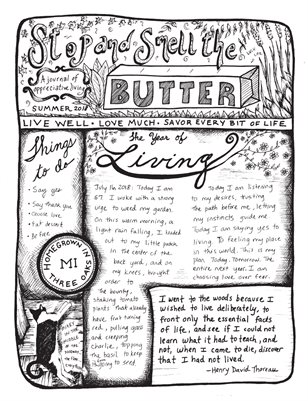 Stop and Smell the
BUTTER
A journal of
appreciative living
SUMMER 2018
LIVE WELL • LOVE MUCH • SAVOR EVERY BIT OF LIFE
Things
to do
• Say yes
• Say thank you
• Choose love
• Eat dessert
• Be free
HOMEGROWN IN
MI
THREE OAKS
The Year of
Living
July 16, 2018. Today I am
67. I woke with a strong
urge to weed my garden.
On this warm morning, a
light rain falling, I headed
out to my little patch
in the center of the
back yard, and on
my knees, brought
order to
the bounty,
shaking tomato
plants that already
have fruit turning
red, pulling grass
and creeping
charlie, topping
the basil to keep
it going to
Today I am listening
to my desires, trusting
the path before me, letting
my instincts guide me.
Today I am saying yes to
living, to feeling my place
in this world. This is my
plan. Today. Tomorrow. The
entire next year. I am
choosing love over fear.
I went to the woods because I
wished to live deliberately, to
front only the essential facts
of life, and see if I could not
learn what it had to teach, and
not, when I came to die, discover
that I had not lived.
—Henry David Thoreau